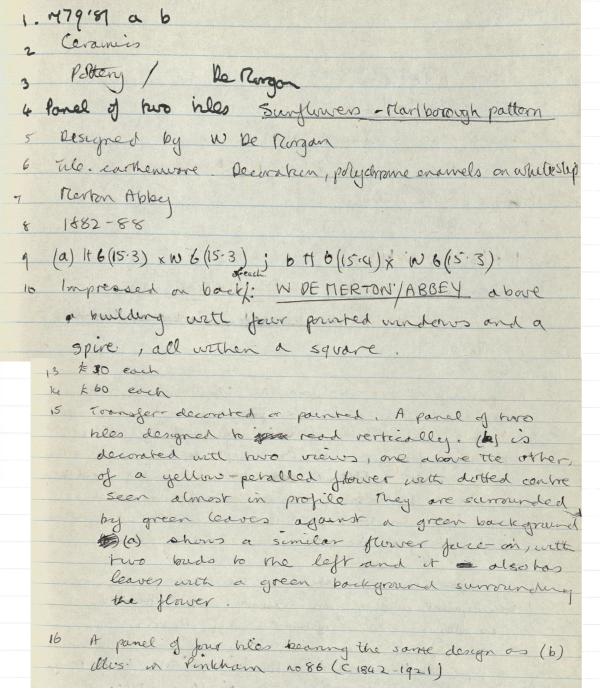 1. M79'87 a b
2 Ceramics
3 Pottery / De Morgan
4 Panel of two tiles Sunflowers - Marlborough pattern
5 Designed by W De Morgan
6 Tile. earthenware. Decoration, polychrome enamels on white slip
7 Merton Abbey
8 1882-88
9 (a) H 6 (15.3) x W 6 (15.3) ; b H 6 (15.4) x W 6 (15.3)
of each
10 Impressed on back/: W DE MERTON/ABBEY above
a building with four pointed windows and a
spire, all within a square.
13 £30 each
14 £60 each
15 Transfer-decorated or painted. A panel of two
tiles designed to read vertically. (b) is
decorated with two views, one above the other,
of a yellow-petalled flower with dotted centre
seen almost in profile They are surrounded
by green leaves against a green background
(a) shows a similar flower face-on, with
two buds to the left and it also has
leaves with a green background surrounding
the flower.
16 A panel of four tiles bearing the same design as (b)
illus. in Pinkham no 86 (C 1842-1921)